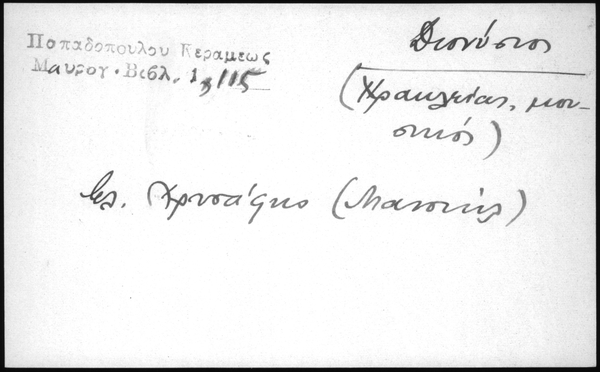 Παπαδοπούλου Κεραμεως
Μαυρογ. Βιβλ. 1, 115
Διονύσιος
(Ηρακλείας, μου-
σικός)
βλ. Χρυσάφης (Μανουήλ)